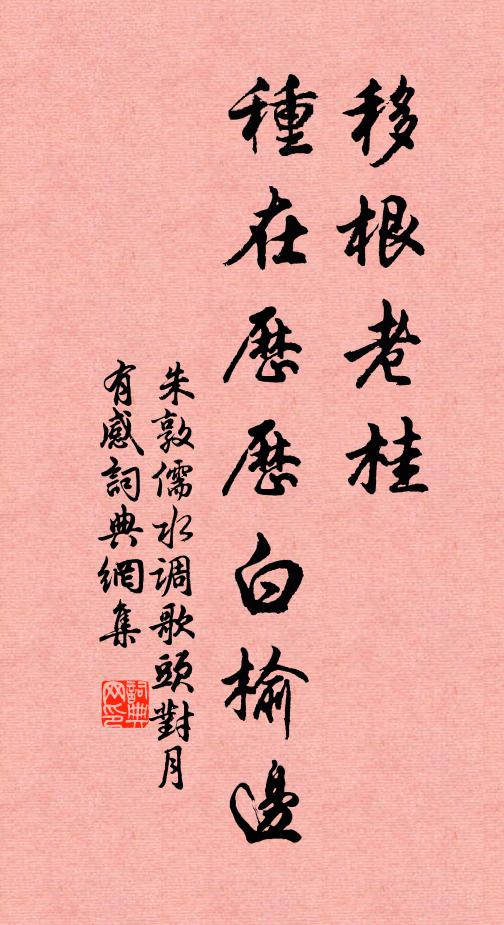 移根老桂
種在歷歷白榆邊
朱敦儒水调歌頭對月
有感詞典網集
詞典网印